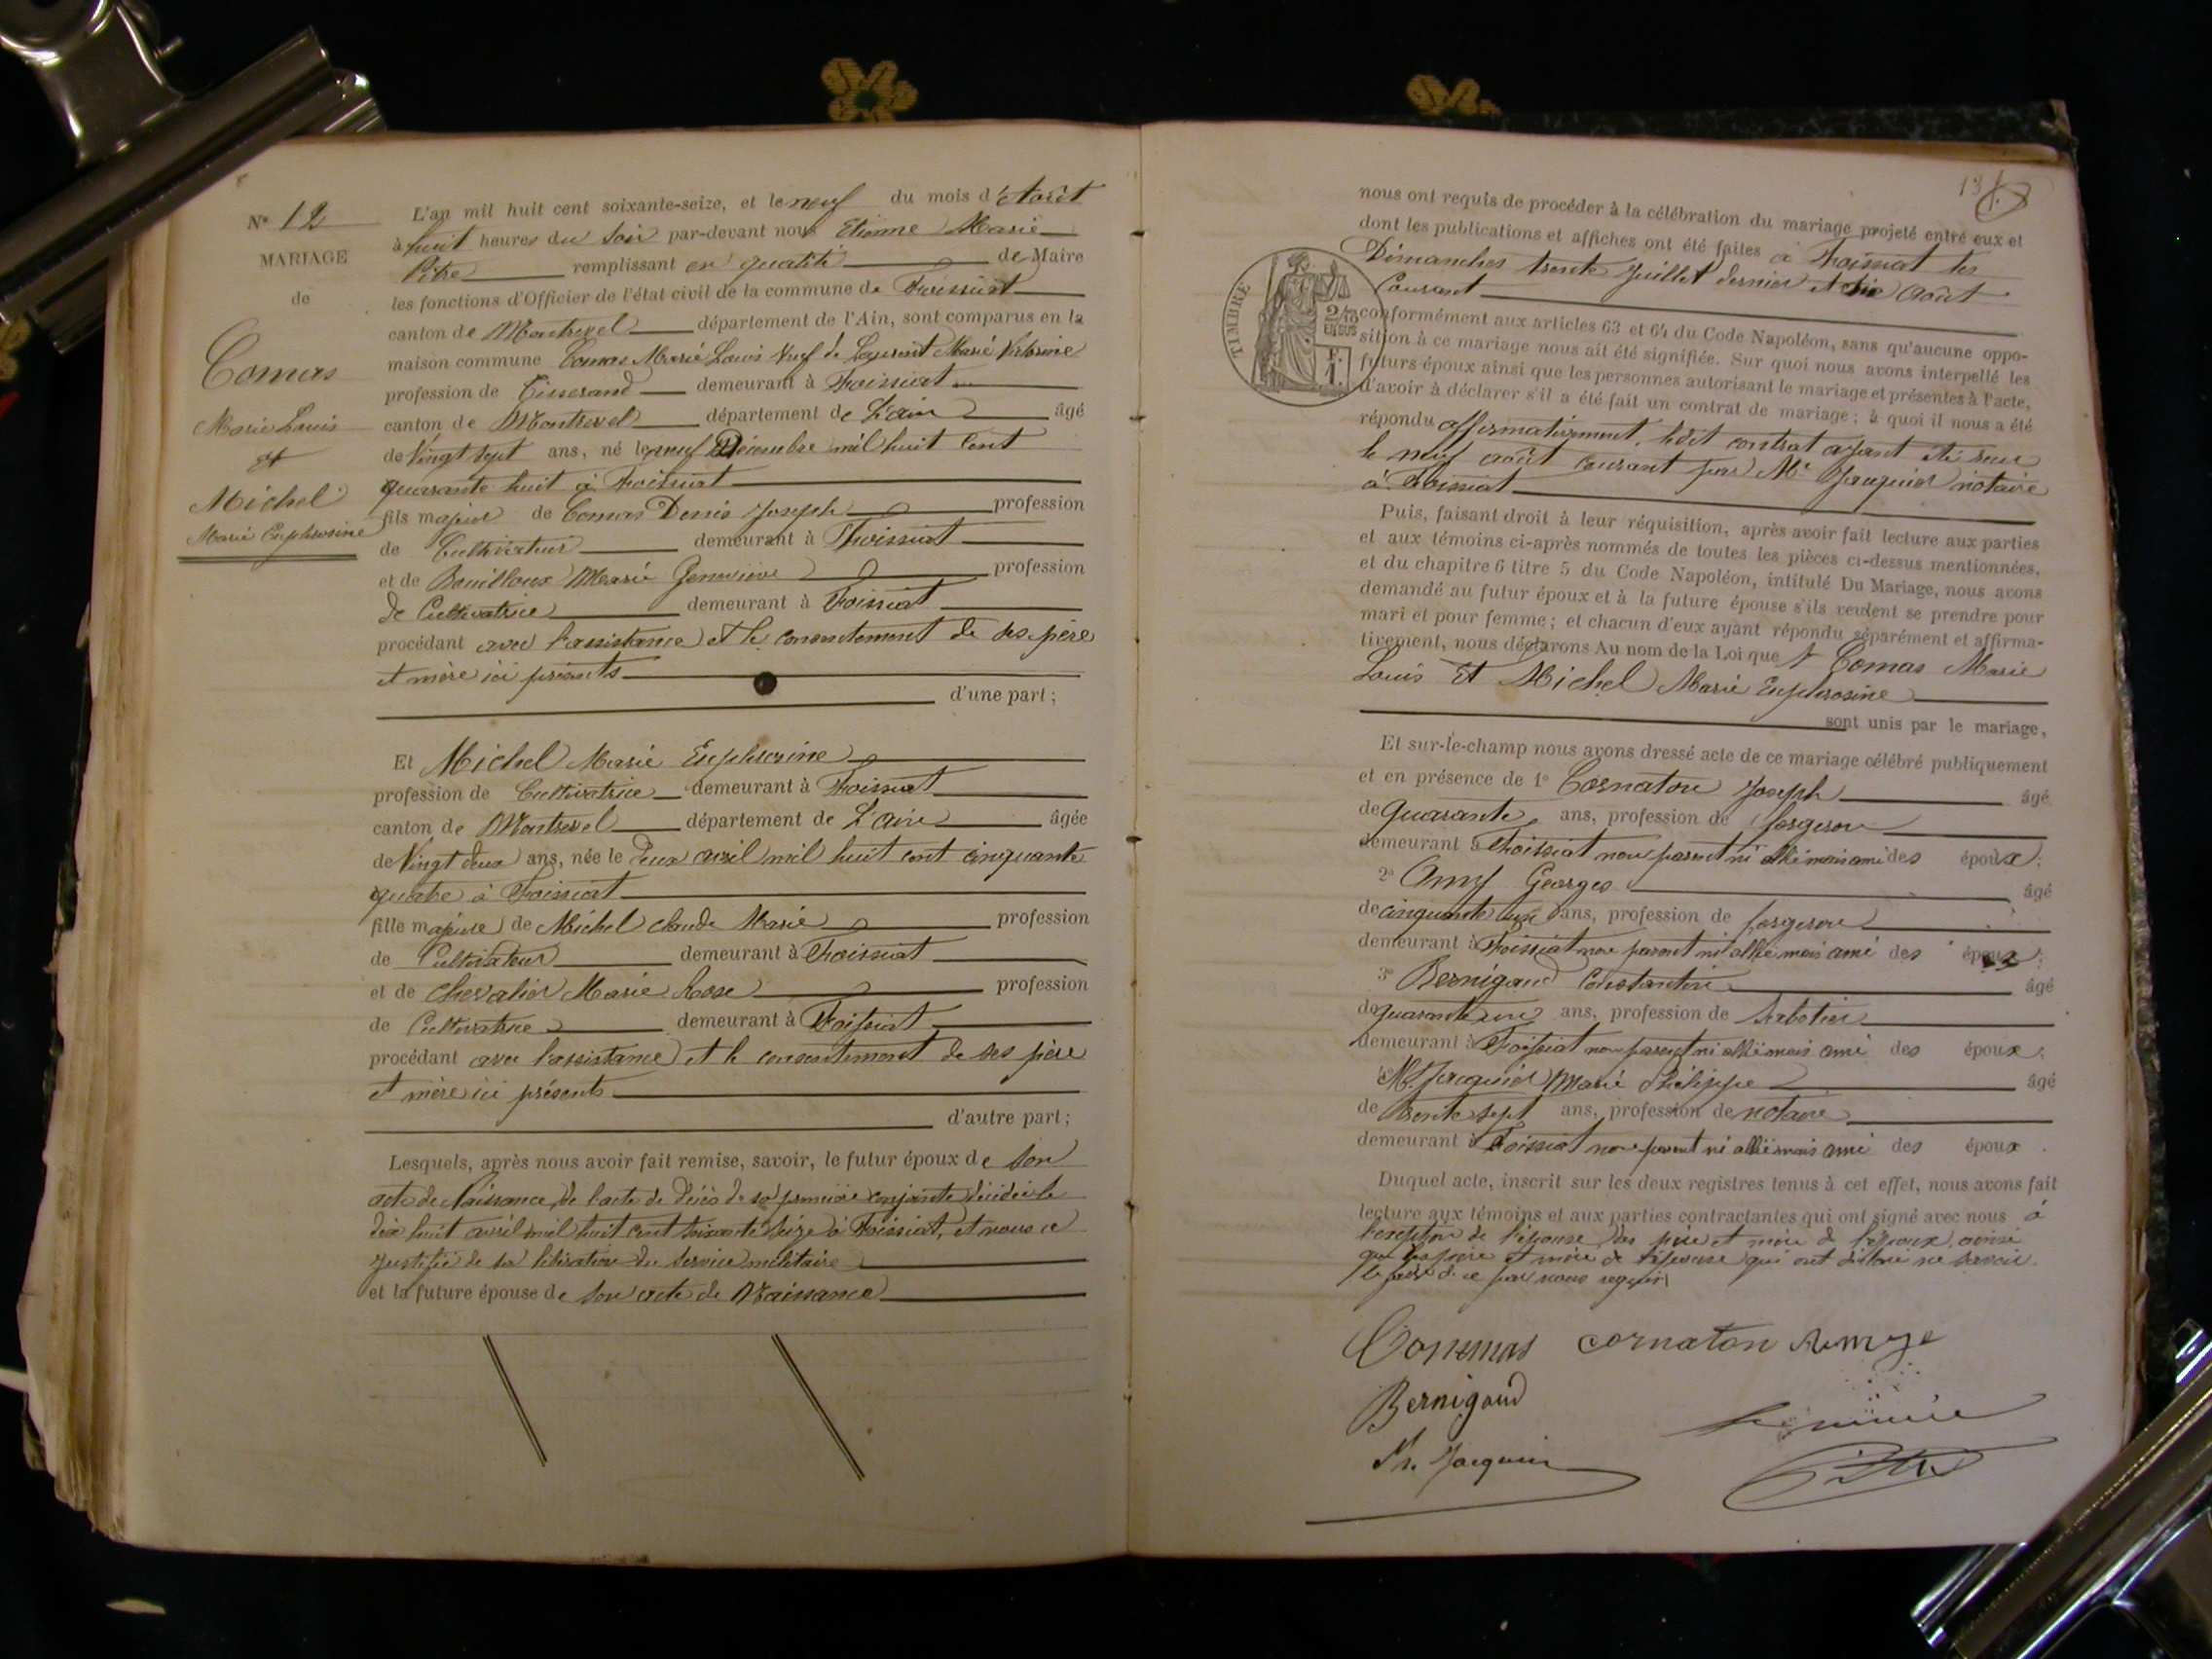 N° 12
MARIAGE
de
Comas
Marie Louis
et
Michel
Marie Euphrosine
L'an mil huit cent soixante-seize, et le neuf du mois d'Août
à huit heures du soir par-devant nous Etienne Marie
Pitre remplissant en qualité de Maire
les fonctions d'Officier de l'état civil de la commune de Foissiat
canton de Montrevel département de l'Ain, sont comparus en la
maison commune Comas Marie Louis Veuf de Laurent Marie
profession de Tisserand demeurant à Foissiat
canton de Montrevel département de L'ain âgé
de Vingt sept ans, né le neuf Décembre mil huit cent
quarante huit à Foissiat
fils majeur de Comas Denis Joseph profession
de Cultivateur demeurant à Foissiat
et de Bouilloux Marie Geneviève profession
de Cultivatrice demeurant à Foissiat
procédant avec l'assistance et le consentement de ses père
et mère ici présents
d'une part ;
Et Michel Marie Euphrosine
profession de Cultivatrice demeurant à Foissiat
canton de Montrevel département de L'ain âgée
de Vingt deux ans, née le Deux avril mil huit cent cinquante
quatre à Foissiat
fille majeure de Michel Claude Marie profession
de Cultivateur demeurant à Foissiat
et de Chevalier Marie Rose profession
de Cultivatrice demeurant à Foissiat
procédant avec l'assistance et le consentement de ses père
et mère ici présents
d'autre part ;
Lesquels, après nous avoir fait remise, savoir, le futur époux de son
acte de Naissance, de l'acte de décès de sa première conjointe décédée le
dix huit avril mil huit cent soixante seize à Foissiat, et nous a
justifié de sa libération du service militaire
et la future épouse de son acte de Naissance
13
nous ont requis de procéder à la célébration du mariage projeté entre eux et
dont les publications et affiches ont été faites à Foissiat les
Dimanches trente Juillet dernier et six Août
Courant
TIMBRE
2/10
EN SUS
F.
1.
conformément aux articles 63 et 64 du Code Napoléon, sans qu'aucune oppo-
sition à ce mariage nous ait été signifiée. Sur quoi nous avons interpellé les
futurs époux ainsi que les personnes autorisant le mariage et présentes à l'acte,
d'avoir à déclarer s'il a été fait un contrat de mariage ; à quoi il nous a été
répondu affirmativement, ledit contrat ayant été reçu
le neuf août courant par Me Jacquier notaire
à Foissiat
Puis, faisant droit à leur réquisition, après avoir fait lecture aux parties
et aux témoins ci-après nommés de toutes les pièces ci-dessus mentionnées,
et du chapitre 6 titre 5 du Code Napoléon, intitulé Du Mariage, nous avons
demandé au futur époux et à la future épouse s'ils veulent se prendre pour
mari et pour femme ; et chacun d'eux ayant répondu séparément et affirma-
tivement, nous déclarons Au nom de la Loi que Comas Marie
Louis Et Michel Marie Euphrosine
sont unis par le mariage,
Et sur-le-champ nous avons dressé acte de ce mariage célébré publiquement
et en présence de 1° Cornaton Joseph âgé
de quarante ans, profession de forgeron
demeurant à Foissiat non parent ni allié mais ami des époux ;
2° Georges âgé
de cinquante ans, profession de forgeron
demeurant à Foissiat non parent ni allié mais ami des époux ;
3° Bernigaud Constantin âgé
de quarante un ans, profession de Sabotier
demeurant à Foissiat non parent ni allié mais ami des époux ;
4° Jacquier Marie Philippe âgé
de trente sept ans, profession de notaire
demeurant à Foissiat non parent ni allié mais ami des époux .
Duquel acte, inscrit sur les deux registres tenus à cet effet, nous avons fait
lecture aux témoins et aux parties contractantes qui ont signé avec nous à
l'exception de l'épouse, des père et mère de l'époux, ainsi
que des père et mère de l'épouse qui ont déclaré ne savoir
le faire de ce par nous requis
Conmas cornaton
Bernigaud Le maire
Ph. Jacquier Pitre